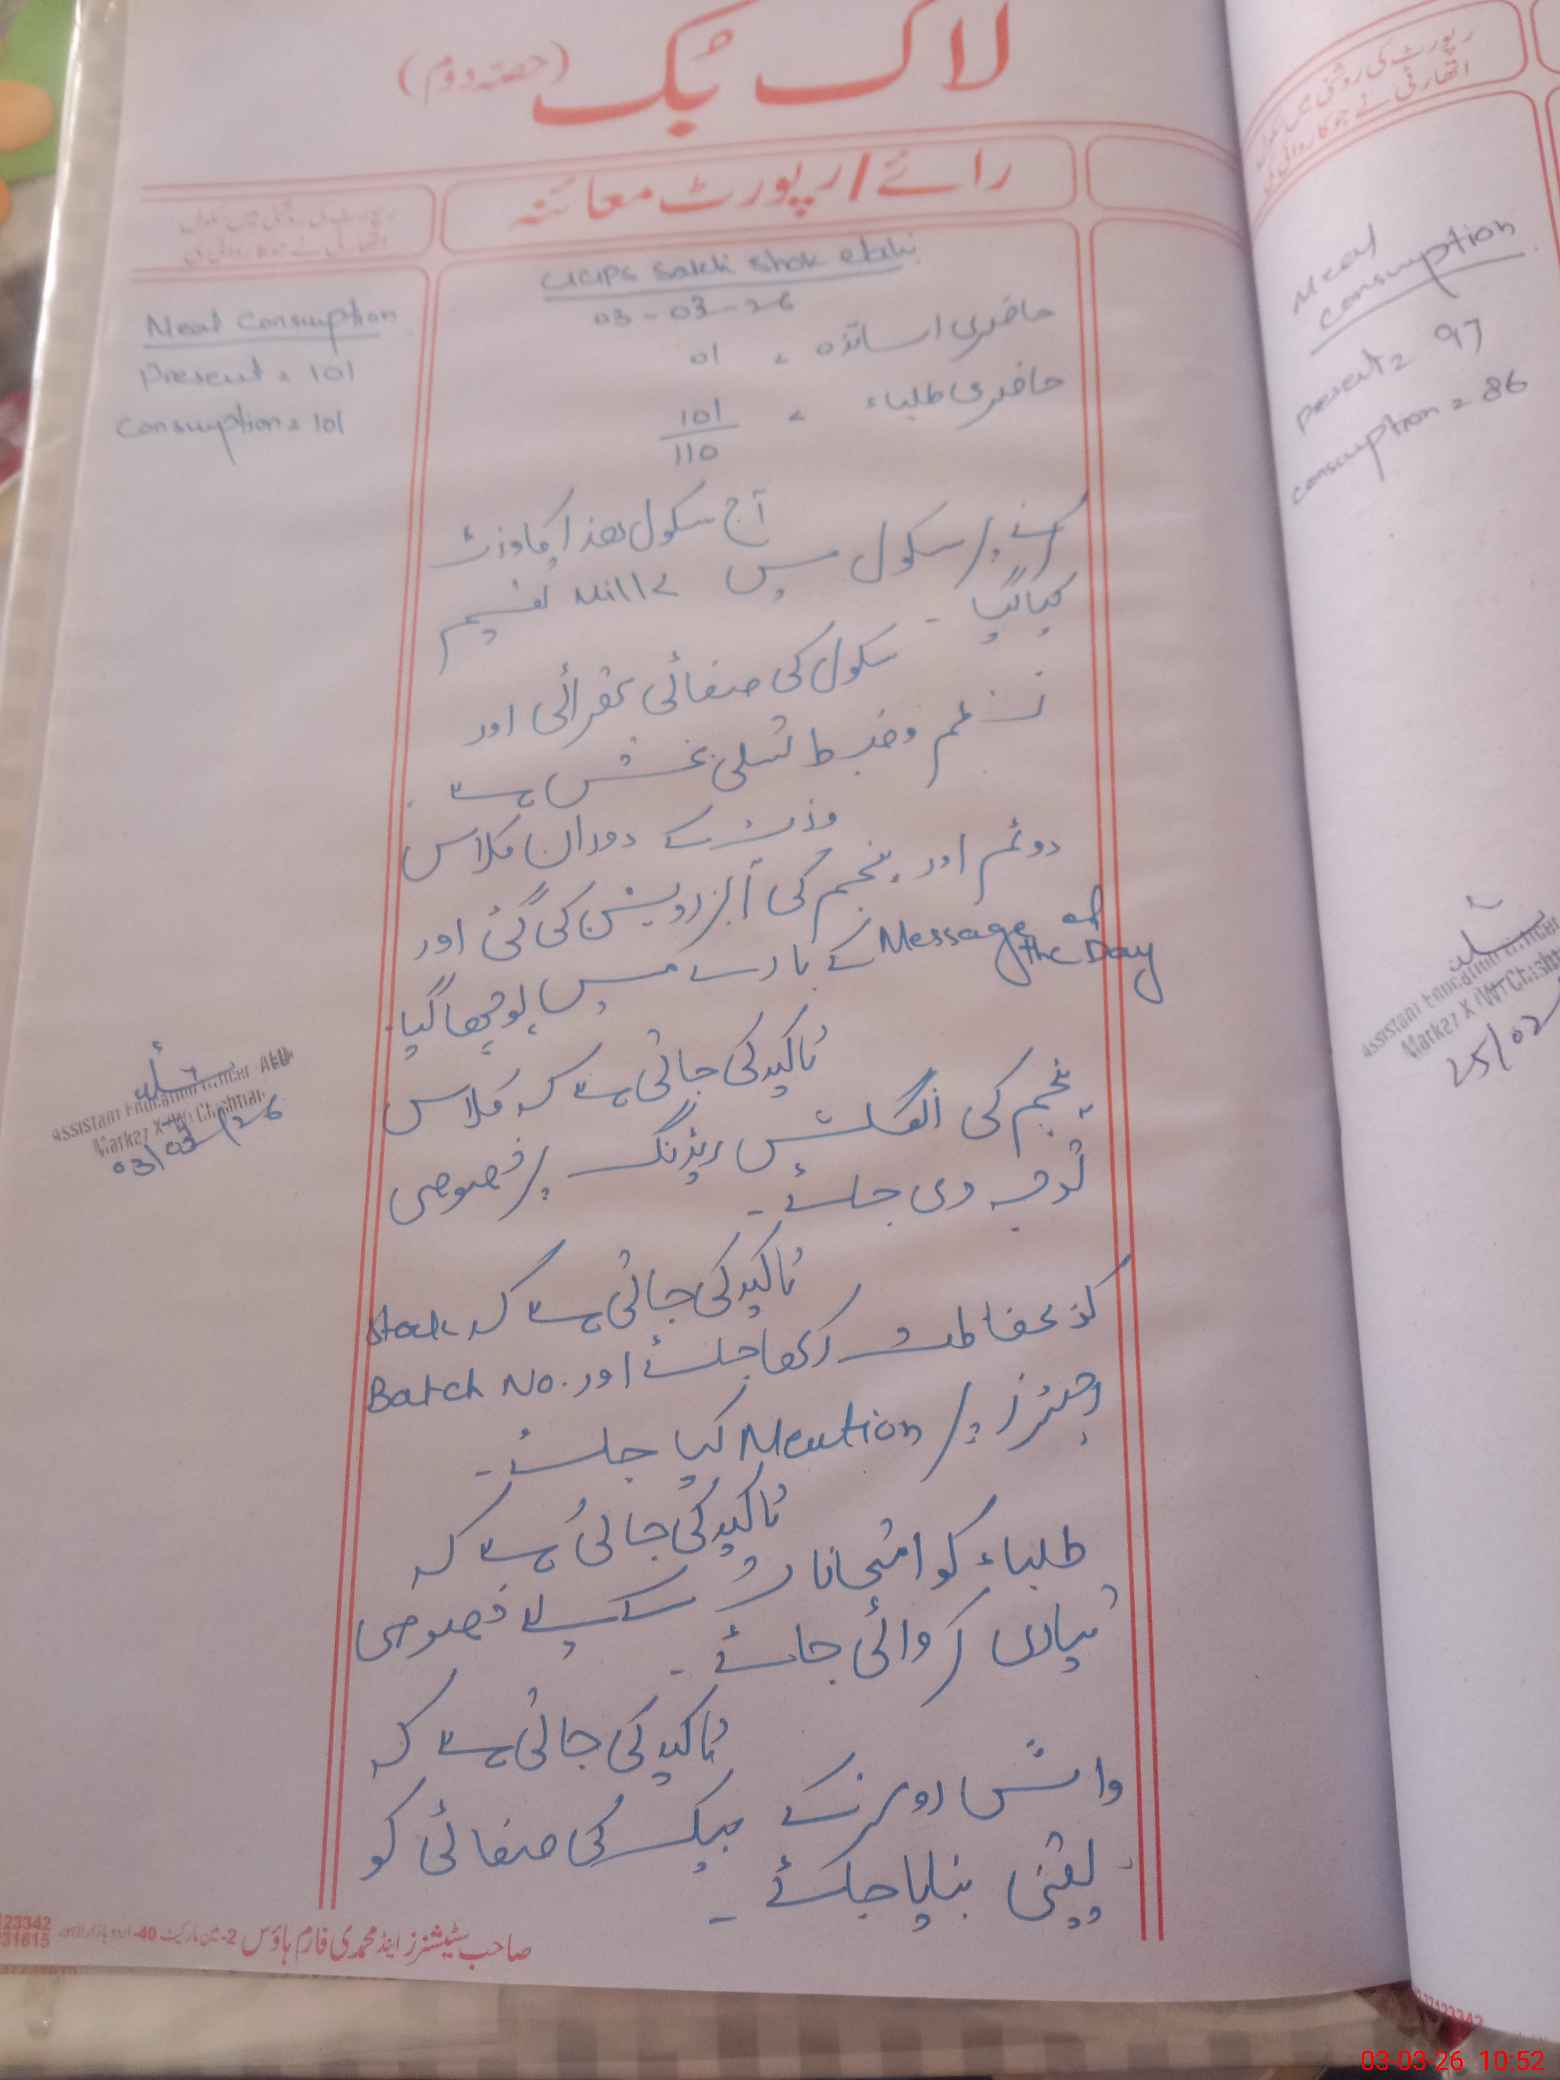 لاگ بُک (حصّہ دوم)
رائے/رپورٹ معائنہ
03-03-26
حاضری اساتذہ = 01
حاضری طلباء = 101/110
آج سکول ھذا کا وزٹ
کرنے پر سکول میں Milk تقسیم
کیا گیا -
سکول کی صفائی ستھرائی اور
نظم و ضبط تسلی بخش ہے -
وزٹ کے دوران کلاس
دوئم اور پنجم کی آبزرویشن کی گئی اور
Message of the Day کے بارے میں پوچھا گیا -
تاکید کی جاتی ہے کہ کلاس
پنجم کی انگلش ریڈنگ پر خصوصی
توجہ دی جائے -
تاکید کی جاتی ہے کہ Stock
کو بحفاظت رکھا جائے اور Batch No.
رجسٹرز پر Mention کیا جائے -
تاکید کی جاتی ہے کہ
طلباء کو امتحانات کے لیے خصوصی
تیاری کروائی جائے -
تاکید کی جاتی ہے کہ
واش رومز کے صفائی کو
یقینی بنایا جائے -
Meal Consumption
Present = 101
Consumption = 101
Assistant Education Officer AEO
Markaz X (W) Chishtian
03/03/26
صاحب سٹیشنرز اینڈ محمدی فارم ہاؤس 2-مین مارکیٹ 40-اردو بازار لاہور
رپورٹ کی روشنی میں
اتھارٹی نے جو کاروائی کی
Meal
Consumption
Present = 97
Consumption = 86
Assistant Education Officer
Markaz X (W) Chisht
25/02
03-03-26 10:52